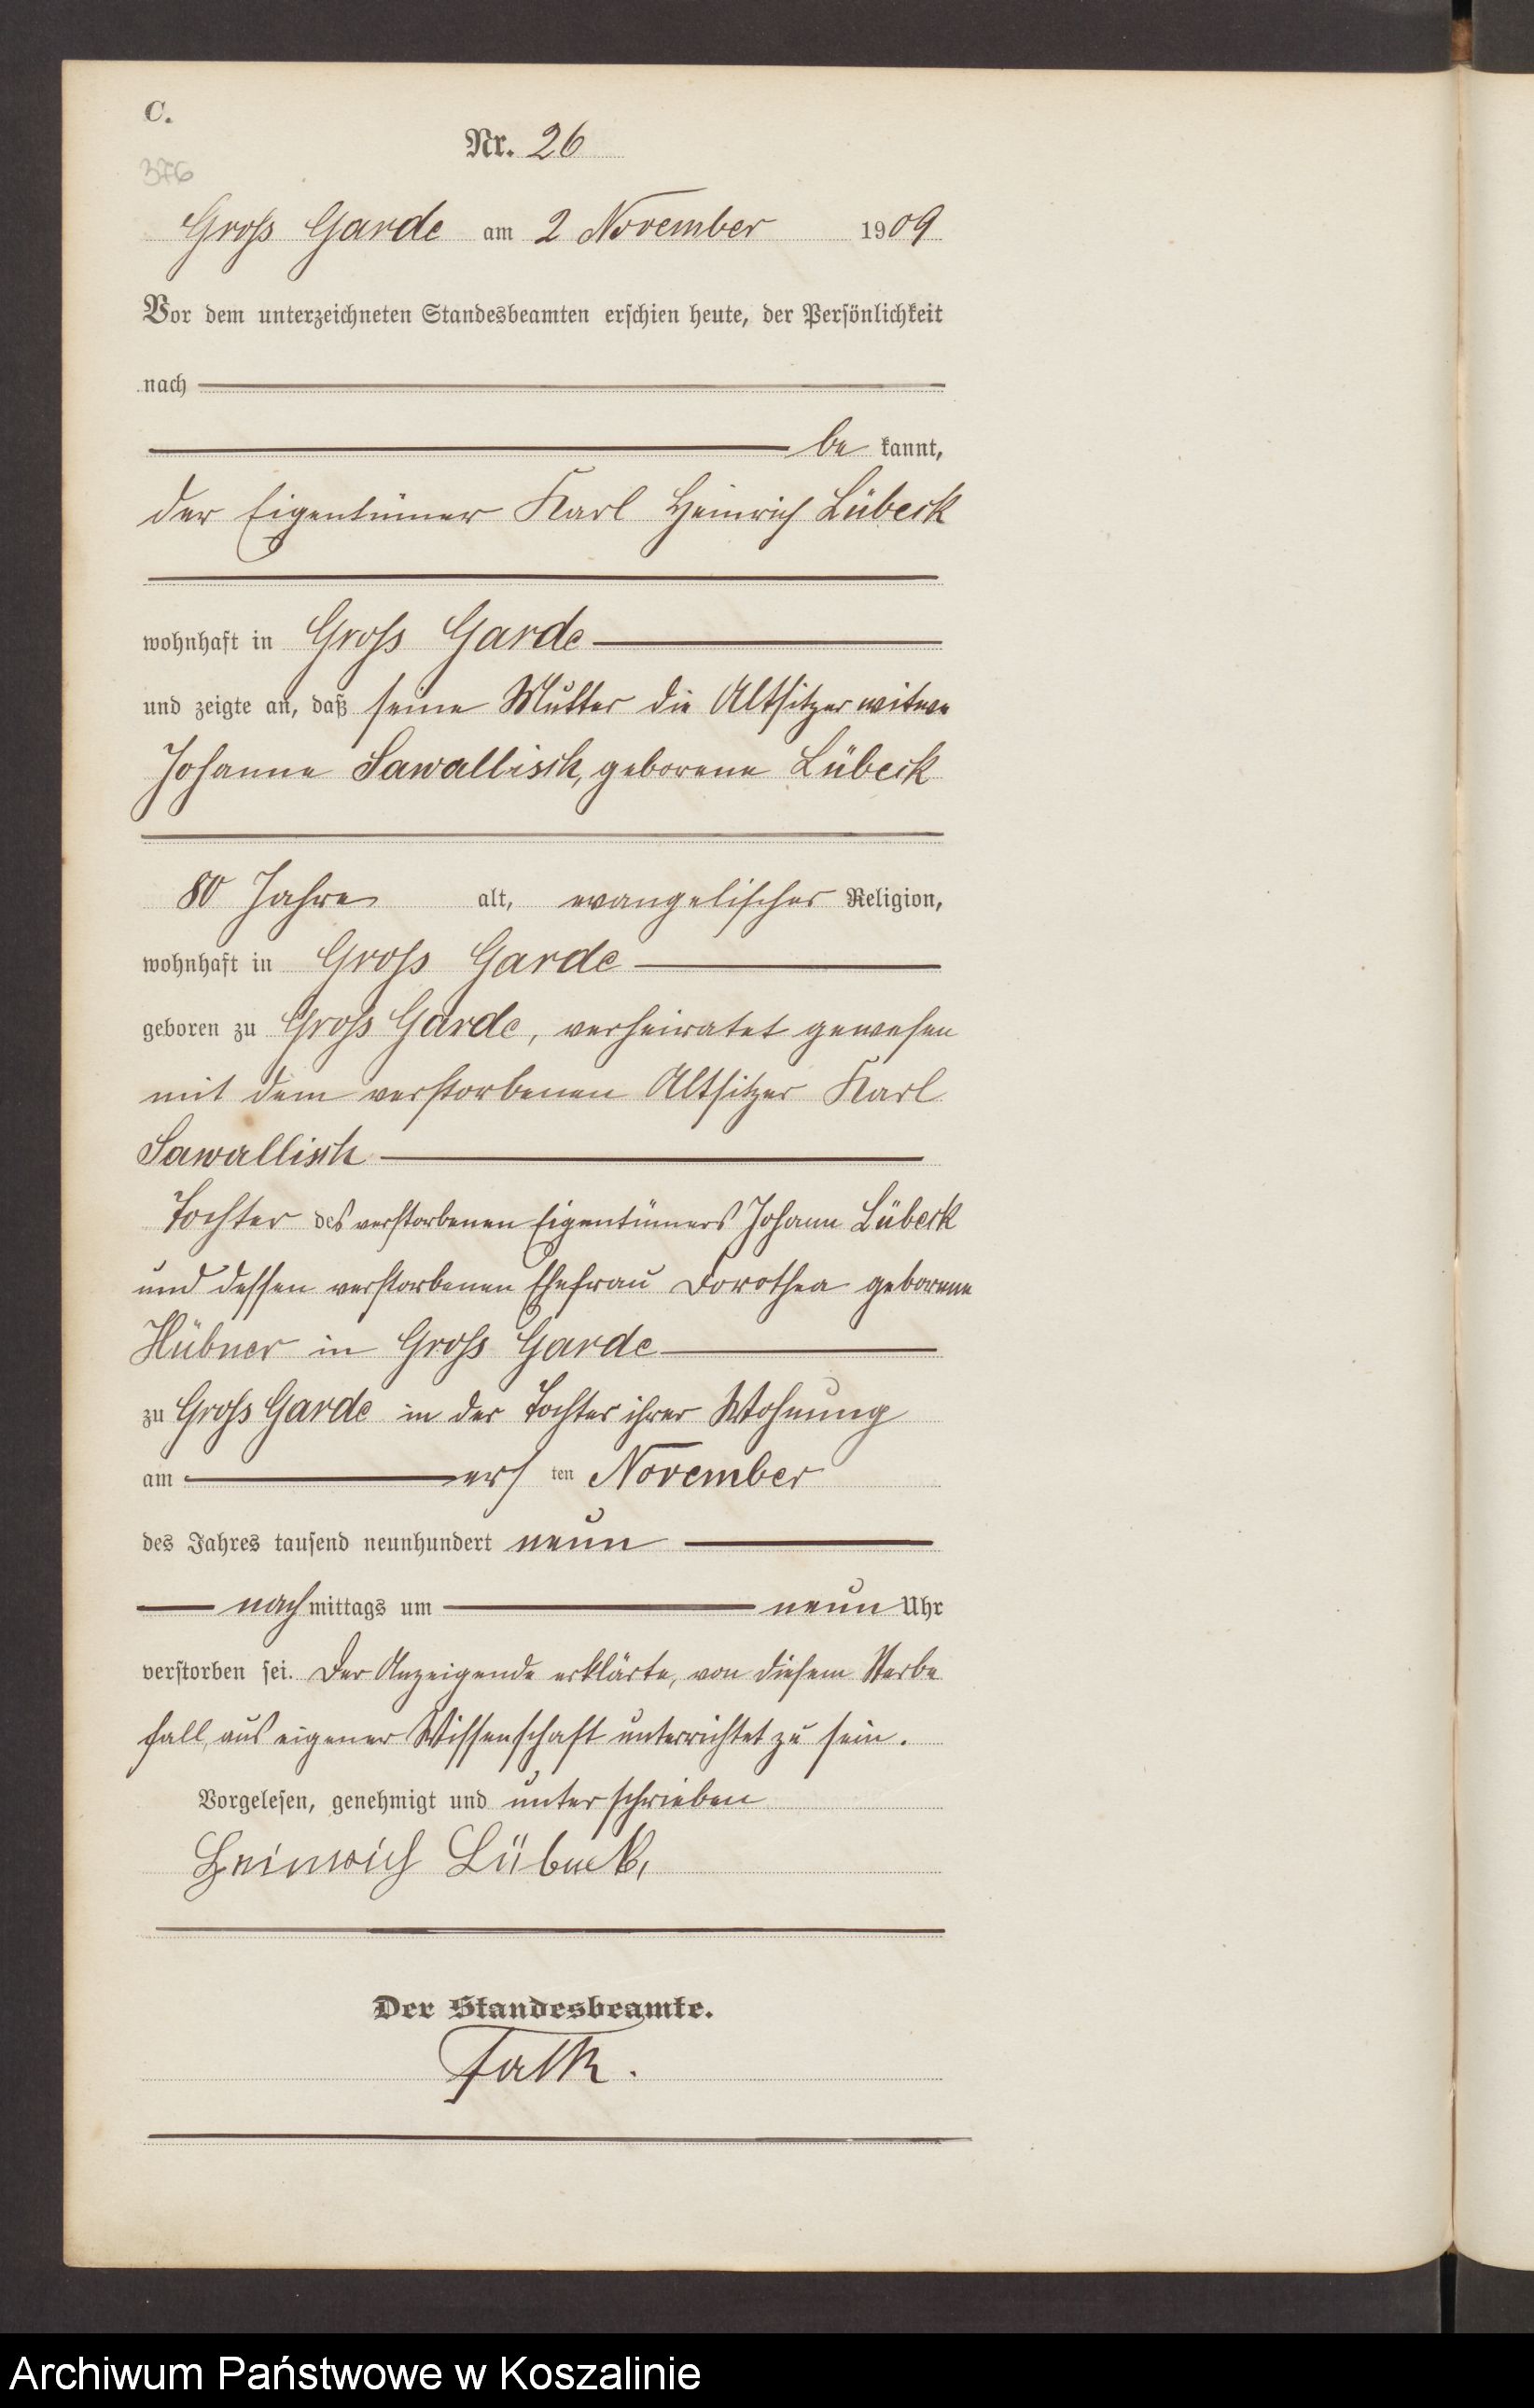 C.
Nr. 26
376
Groß Garde am 2 November 1909
Vor dem unterzeichneten Standesbeamten erschien heute, der Persönlichkeit
nach
be kannt,
der Eigentümer Karl Heinrich Lübeck
wohnhaft in Groß Garde
und zeigte an, daß seine Mutter die Altsitzerwitwe
Johanne Sawallisch, geborene Lübeck
80 Jahre alt, evangelischer Religion,
wohnhaft in Groß Garde
geboren zu Groß Garde, verheiratet gewesen
mit dem verstorbenen Altsitzer Karl
Sawallisch
Tochter des verstorbenen Eigentümers Johann Lübeck
und dessen verstorbenen Ehefrau Dorothea geborene
Hübner in Groß Garde
zu Groß Garde in der Tochter ihrer Wohnung
am ers ten November
des Jahres tausend neunhundert neun
nachmittags um neun Uhr
verstorben sei. Der Anzeigende erklärte, von diesem Sterbe
fall, aus eigener Wissenschaft unterrichtet zu sein.
Vorgelesen, genehmigt und unterschrieben
Heinrich Lübeck,
Der Standesbeamte.
Falk.
Archiwum Państwowe w Koszalinie